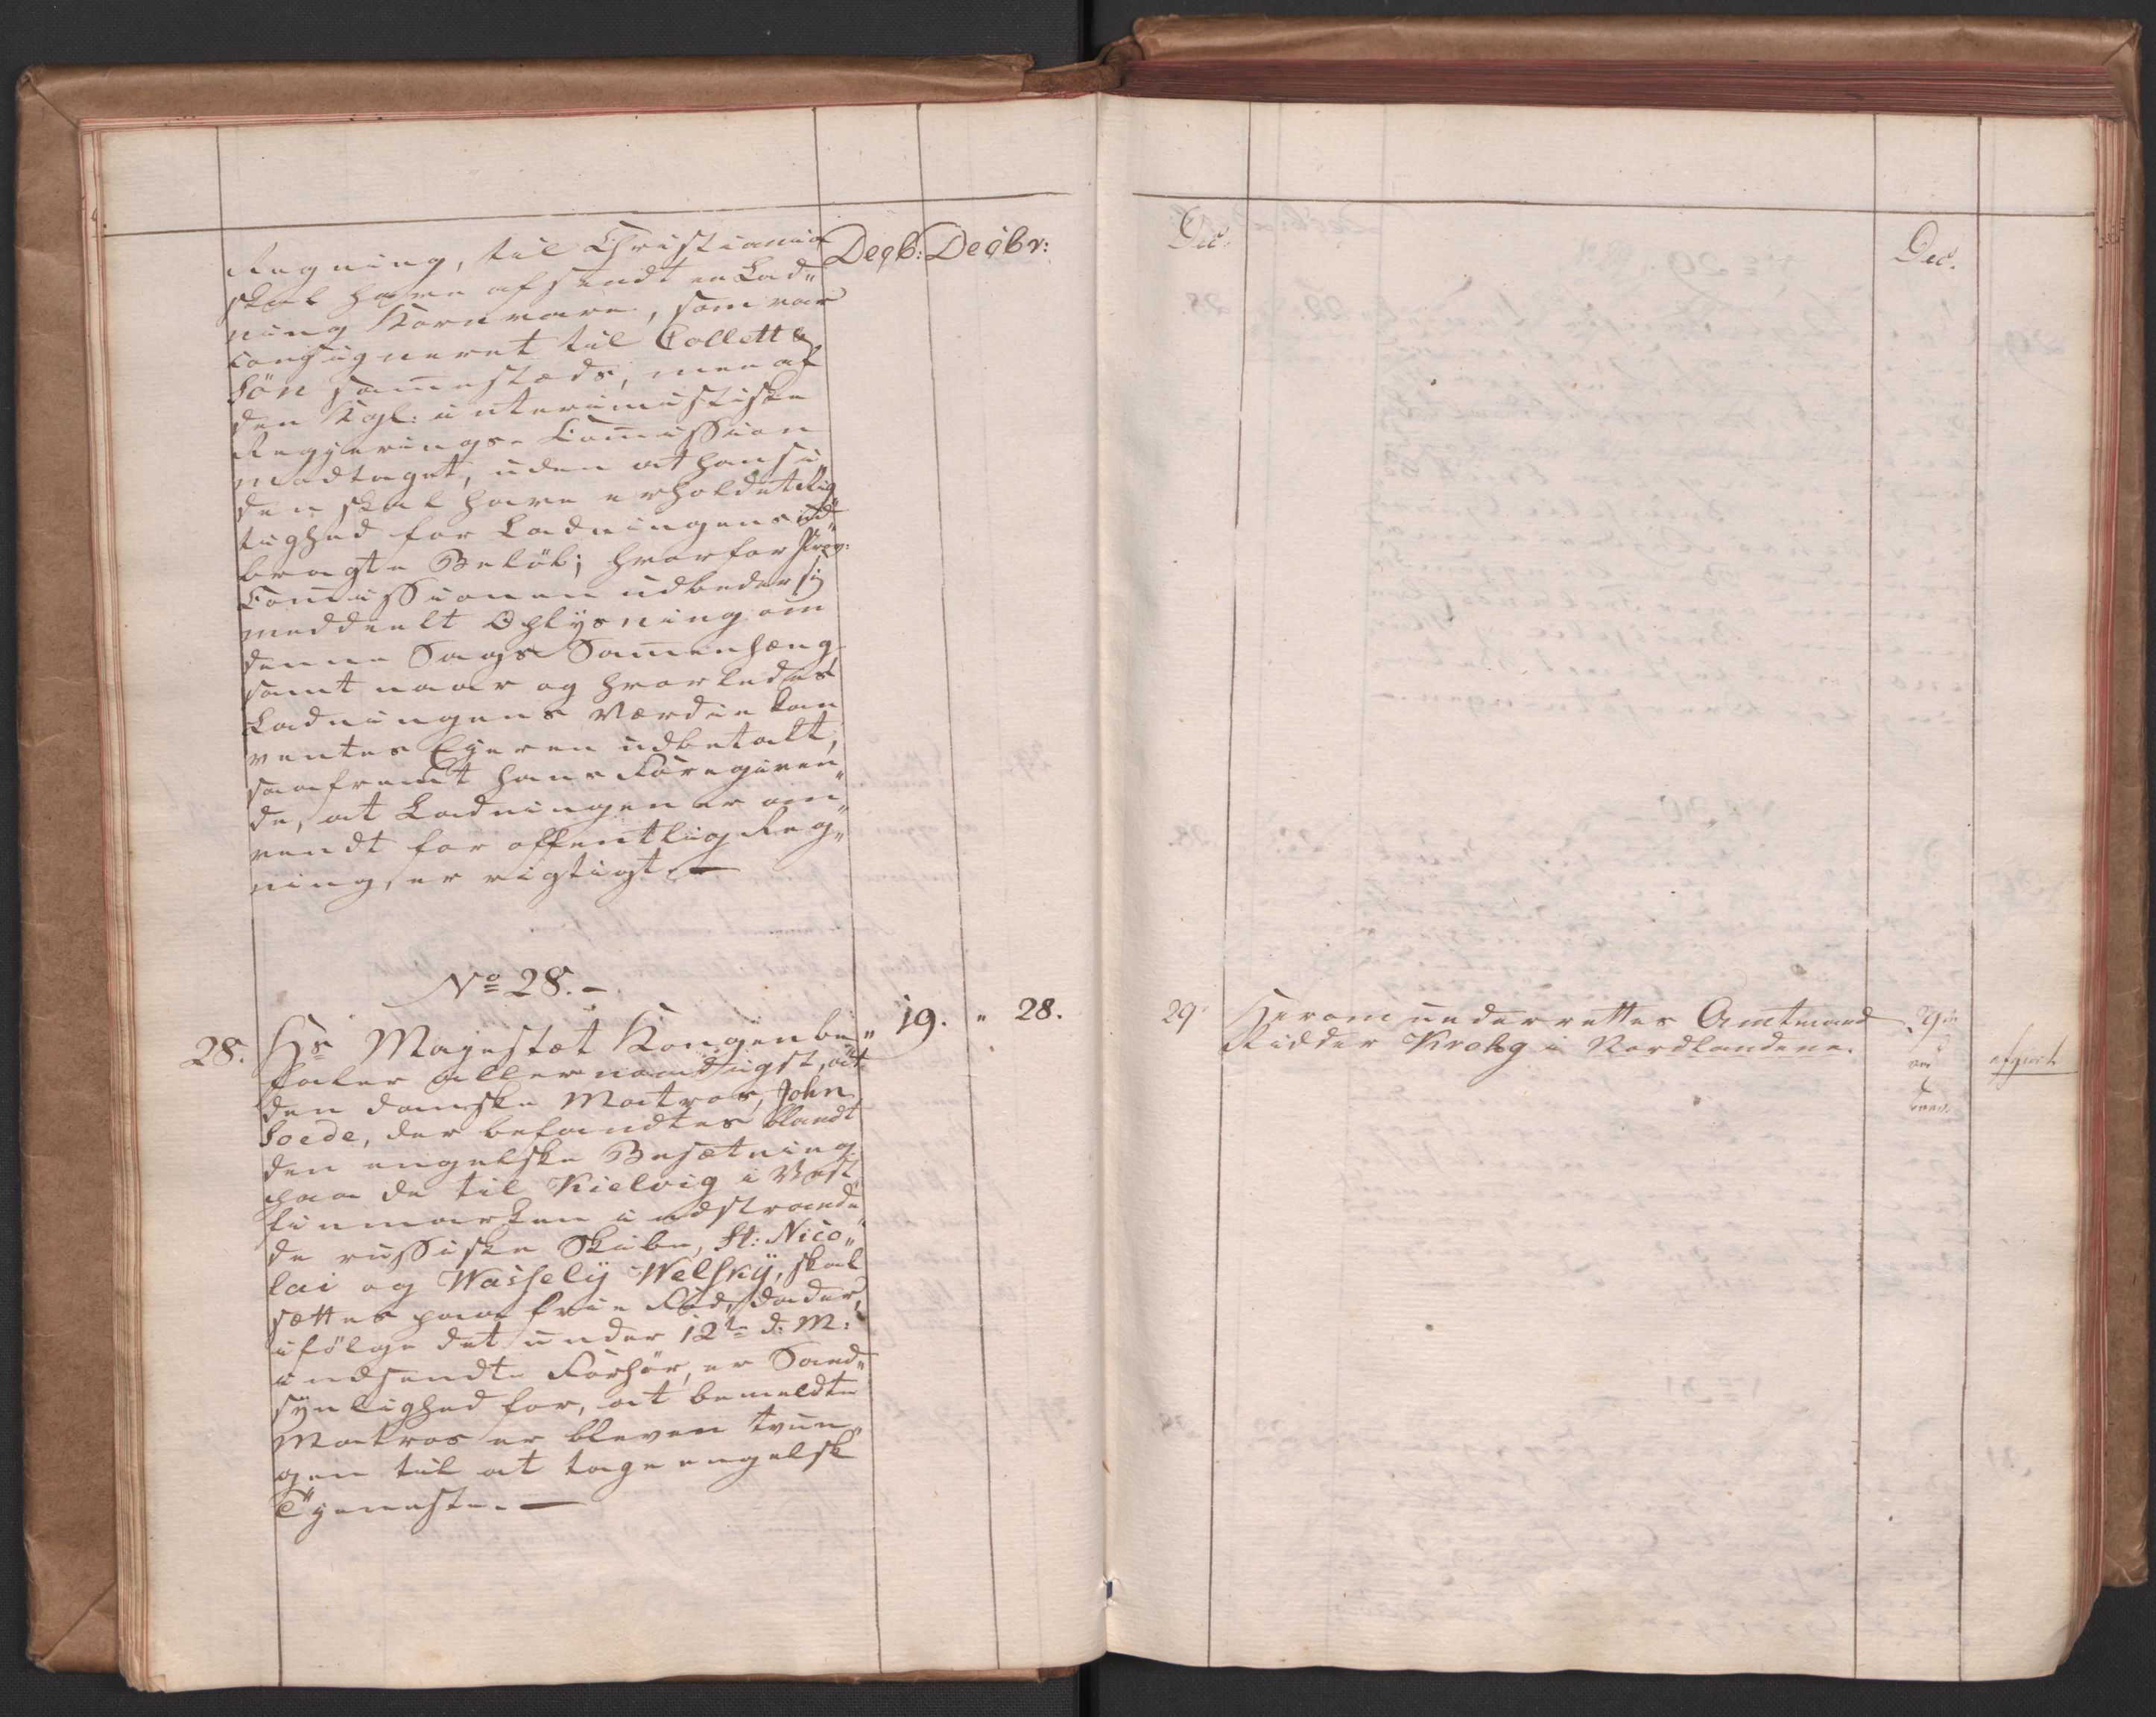 Decb: Decbr:
Regning, til Christiania
skal have afsendt en Lad„
ning Kornvare, som var
consigneret til Collett &
Sön sammestæds, men af
den Kgl: interimistiske
Regjerings-Commission
modtaget, uden at han si„
den skal have erholdet Rig„
tighed for Ladningens ud„
bragte Beløb; hvorfor Prov:
Commissionen udbeder sig
meddeelt Oplysning om
denne Sags Sammenhæng
samt naar og hvorledes
Ladningens Værdie kan
ventes Ejeren udbetalt,
saafremt hans Foregiven„
de, at Ladningen er an„
vendt for offentlig Reg„
ning, er rigtigt. —
No 28. –
28. Hs Majestæt Kongen be„ 19. „ 28.
faler allernaadigst, at
den danske Matros, John
Soede, der befandtes blandt
den engelske Besætning
paa de til Kielvig i Vest
finmarken indstrande„
de russiske Skibe, St: Nico„
lai og Wassely Welsky, skal
sættes paa frie Fod, da der,
ifölge det under 12te d: M:
indsendte Forhör, er Sand„
synlighed for, at bemeldte
Matros er bleven tvun„
gen til at tage engelsk
Tjeneste. —
Dec. Dec.
29 Herom underrettes Amtmand 29de
Ridder Krohg i Nordlandene.
afgjort